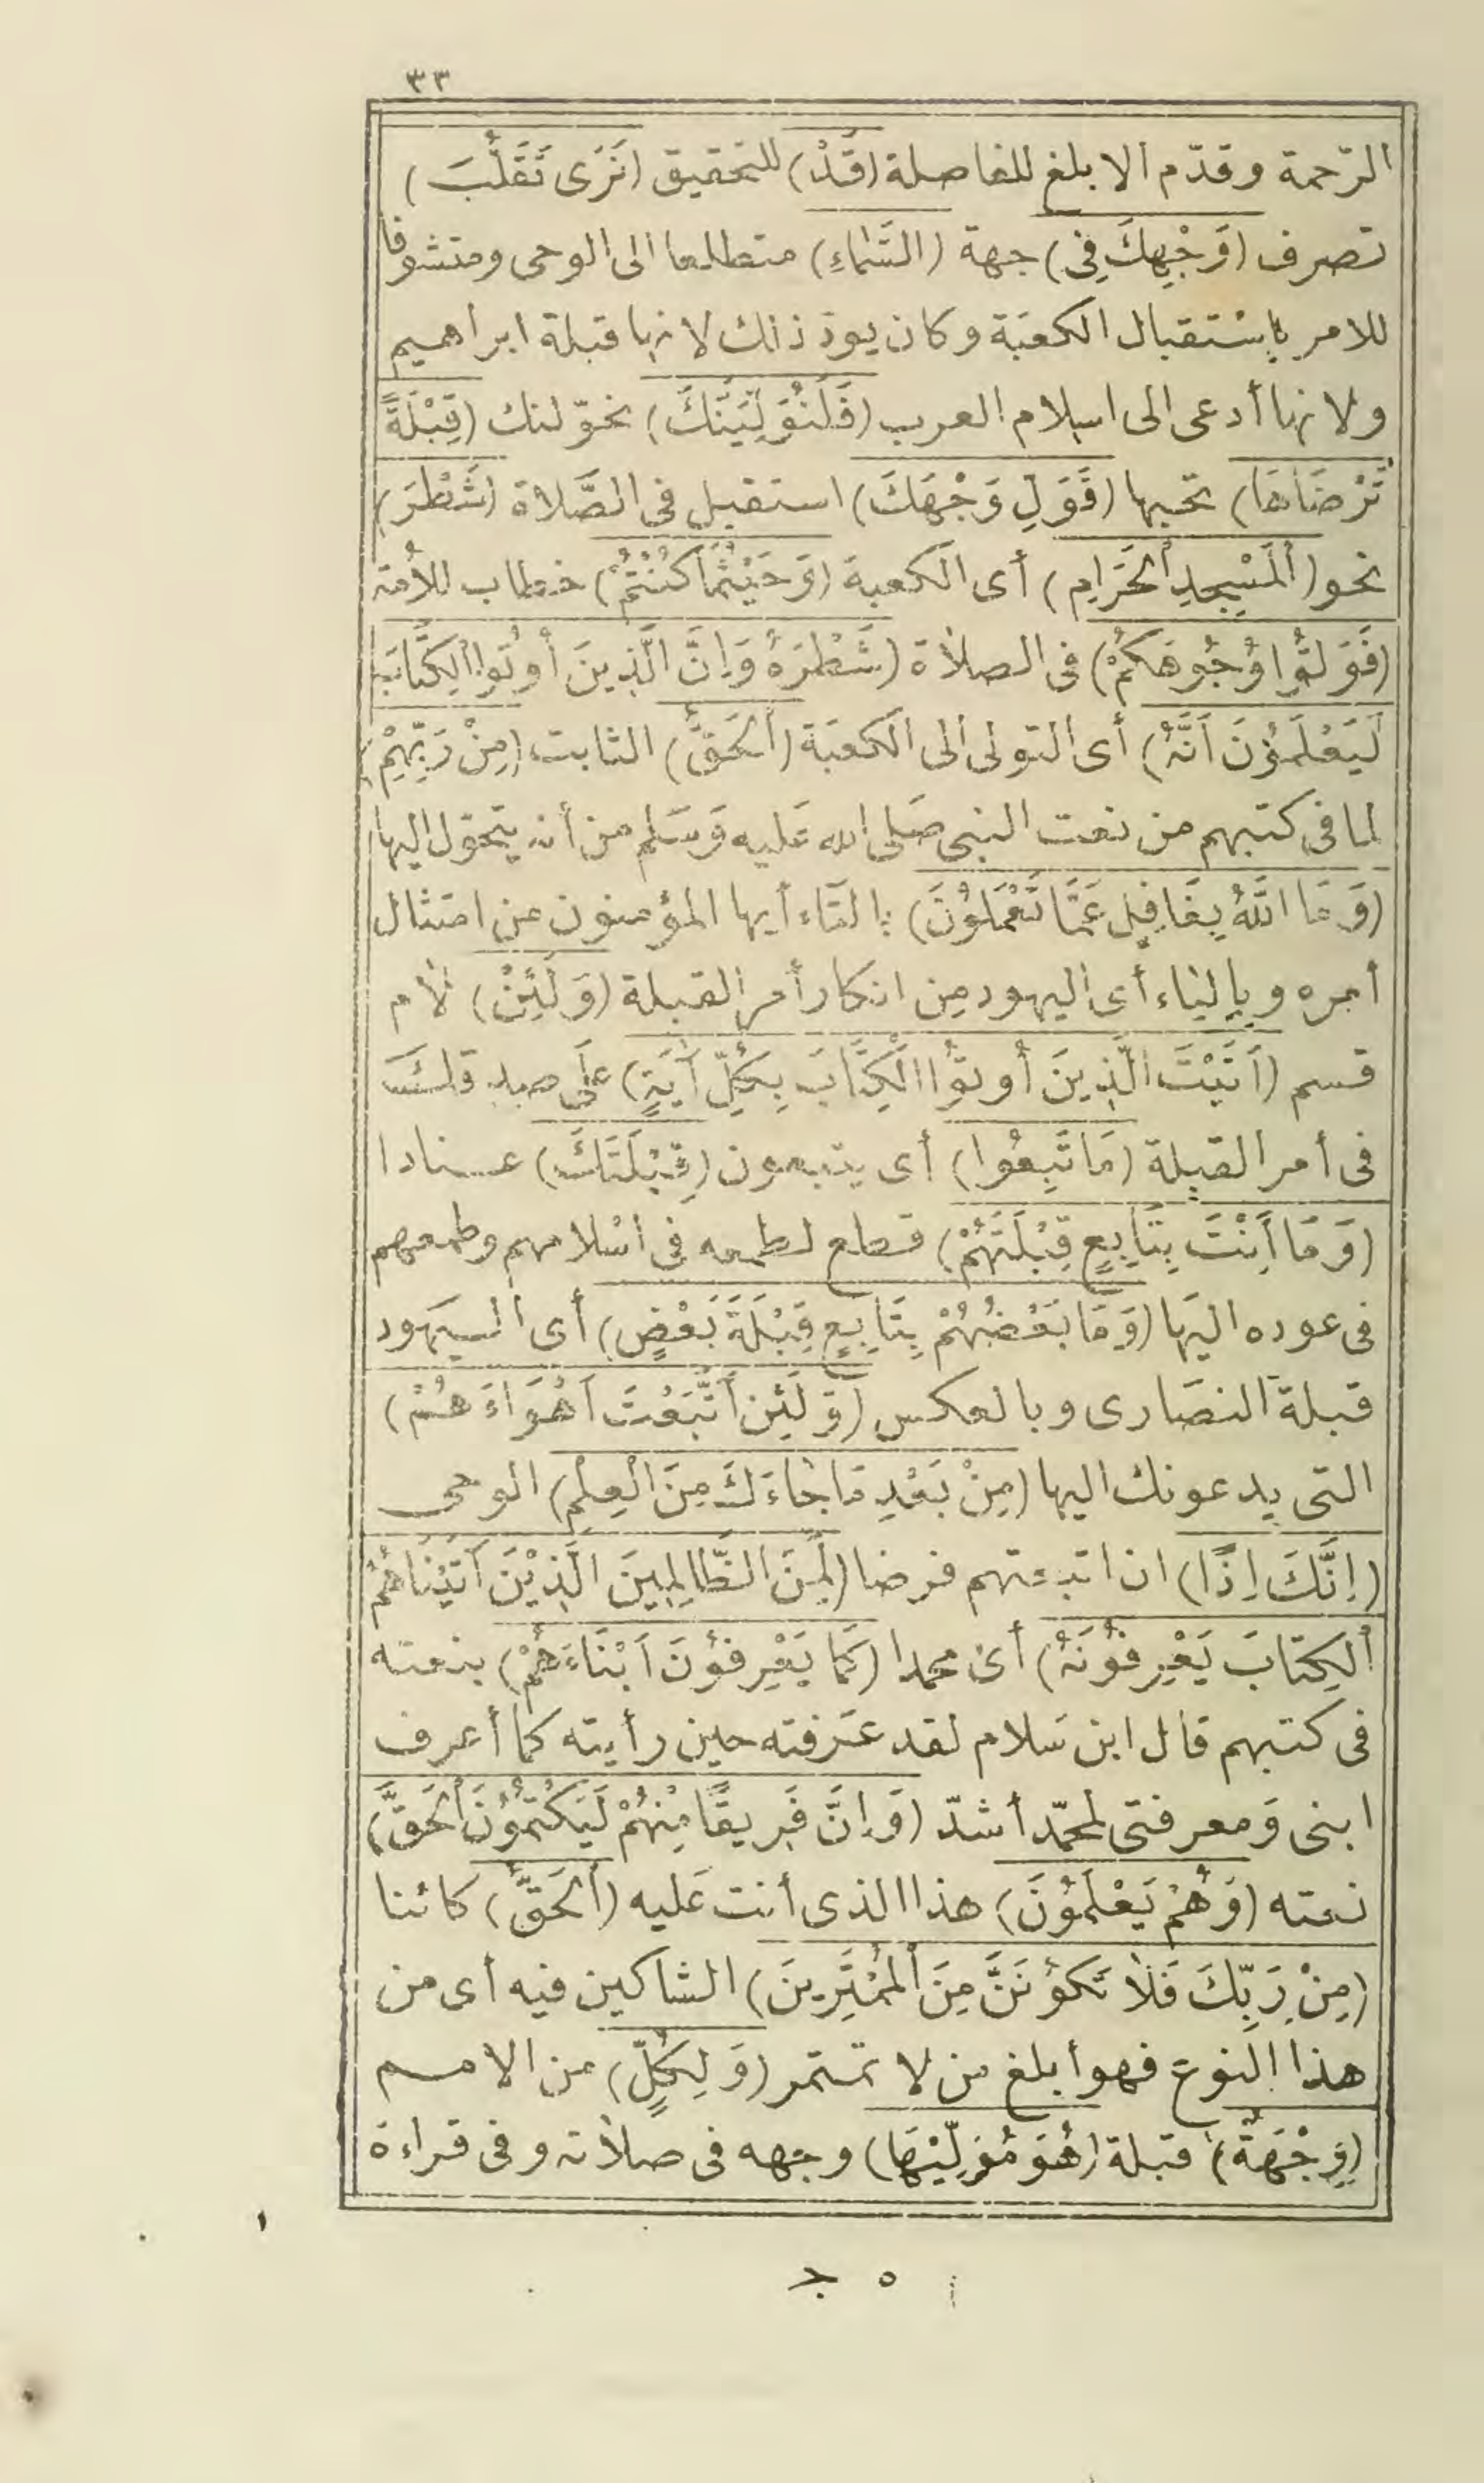 ٣٣
الرّحمة وقدّم الابلغ للفاصلة (قَدْ) للتحقيق (نَرَى تَقَلُّبَ)
تصرف (وَجْهِكَ فِى) جهة (السَّمَاءِ) متطلعا الى الوحى ومتشوفا
للامر باستقبال الكعبَة وكان يودّ ذلك لانها قبلة ابراهيم
ولانها أدعى الى اسلام العرب (فَلَنُوَلِّيَنَّكَ) نحوّلنك (قِبْلَةً
تَرْضَاهَا) تحبها (فَوَلِّ وَجْهَكَ) استقبل فى الصَّلاة (شَطْرَ)
نحو (الْمَسْجِدِ الْحَرَامِ) أى الكعبة (وَحَيْثُمَا كُنْتُمْ) خطاب للأمة
(فَوَلُّوا وُجُوهَكُمْ) فى الصلاة (شَطْرَهُ وَاِنَّ الَّذِينَ أُوتُوا الْكِتَابَ
لَيَعْلَمُونَ اَنَّهُ) أى التولى الى الكعبَة (الْحَقُّ) الثابت (مِنْ رَبِّهِمْ)
لما فى كتبهم من نعت النبى صَلى الله عَليه وَسَلم من أنه يتحوّل اليها
(وَمَا اللَّهُ بِغَافِلٍ عَمَّا تَعْمَلُونَ) بالتاء أيها المؤمنون من امتثال
أمره وبالياء أى اليهود من انكار أمر القبلة (وَلَئِنْ) لام
قسم (اَتَيْتَ الَّذِينَ أُوتُوا الْكِتَابَ بِكُلِّ آيَةٍ) على صدقك
فى أمر القبلة (مَا تَبِعُوا) أى يتبعون (قِبْلَتَكَ) عنادا
(وَمَا أَنْتَ بِتَابِعٍ قِبْلَتَهُمْ) قطع لطمعه فى اسْلامهم وطمعهم
فى عوده اليَها (وَمَا بَعْضُهُمْ بِتَابِعٍ قِبْلَةَ بَعْضٍ) أى اليَهود
قبلة النصَارى وبالعكس (وَلَئِنِ اتَّبَعْتَ اَهْوَاءَهُمْ)
التى يدعونك اليها (مِنْ بَعْدِ مَا جَاءَكَ مِنَ الْعِلْمِ) الوحى
(اِنَّكَ اِذًا) ان اتبعتهم فرضا (لَمِنَ الظَّالِمِينَ الَّذِينَ آتَيْنَاهُمُ
الْكِتَابَ يَعْرِفُونَهُ) أى محمدا (كَمَا يَعْرِفُونَ اَبْنَاءَهُمْ) بنعته
فى كتبهم قال ابن سَلام لقد عَرفته حين رأيته كما أعرف
ابنى وَمعرفتى لمحمّد أشدّ (وَاِنَّ فَرِيقًا مِنْهُمْ لَيَكْتُمُونَ الْحَقَّ)
نعته (وَهُمْ يَعْلَمُونَ) هذا الذى أنت عَليه (الْحَقُّ) كائنا
(مِنْ رَبِّكَ فَلَا تَكُونَنَّ مِنَ الْمُمْتَرِينَ) الشاكين فيه أى من
هذا النوع فهو أبلغ من لا تمتر (وَلِكُلٍّ) من الامم
(وِجْهَةٌ) قبلة (هُوَ مُوَلِّيهَا) وجهه فى صلاته وفى قراءة
٥